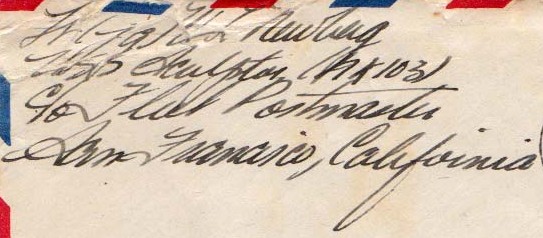 Lt (jg) Newberg
USS Sculptor (AK 103)
c/o Fleet Postmaster
San Francisco, California